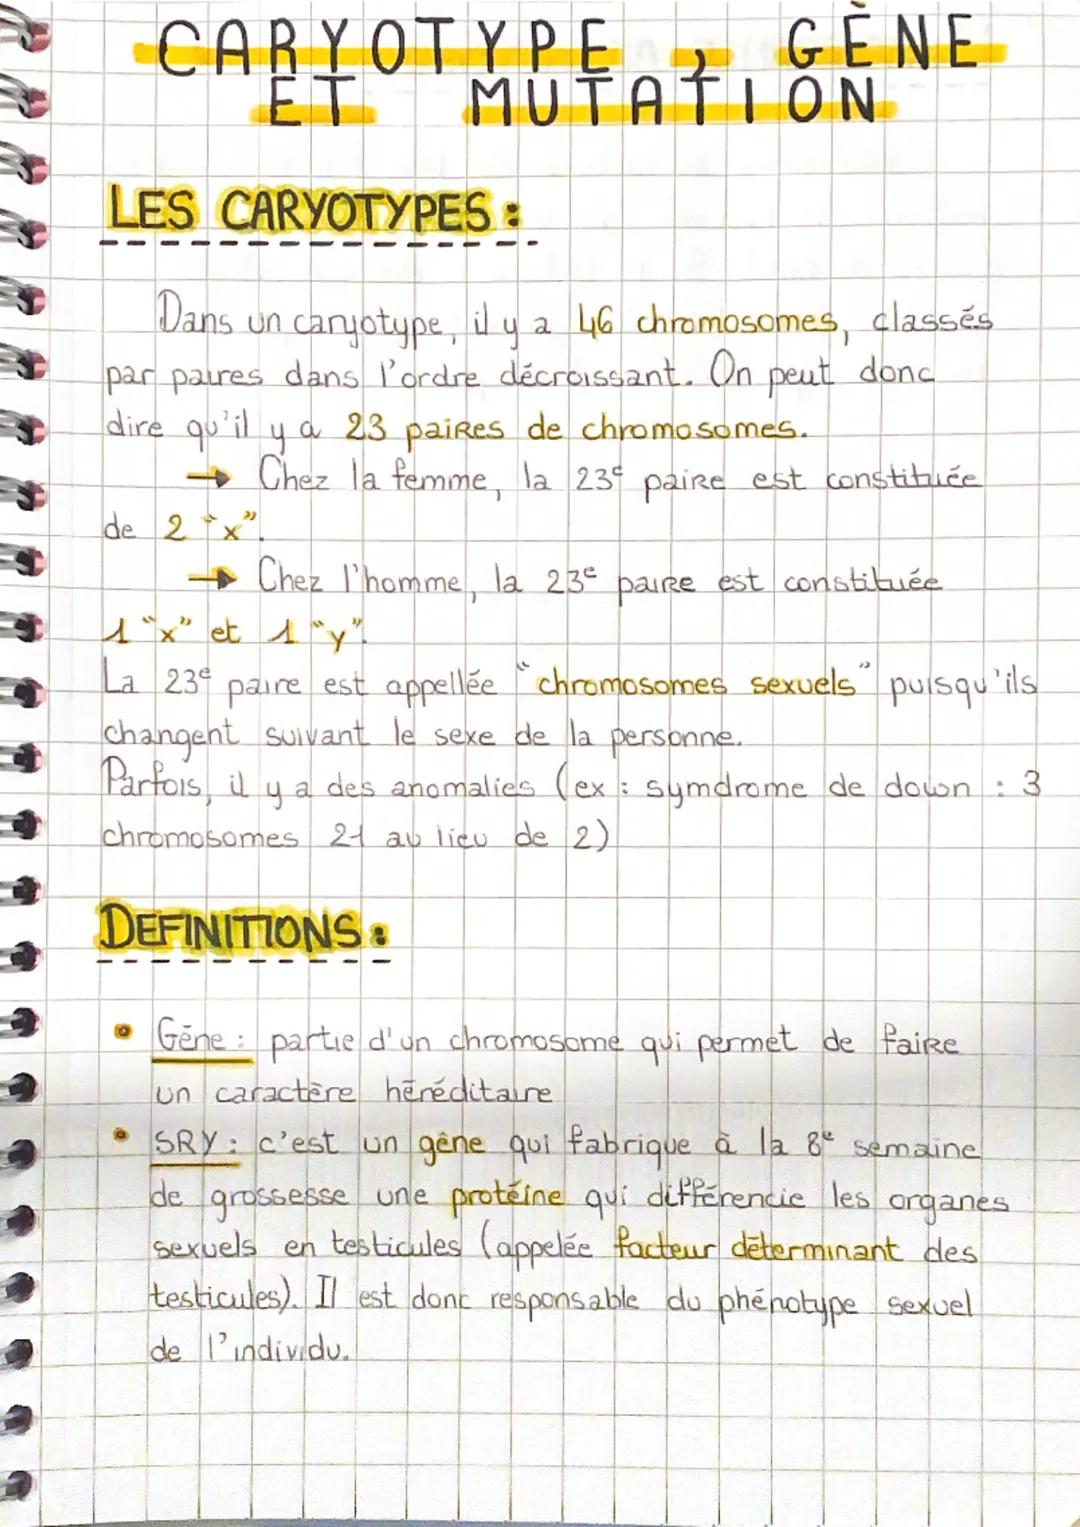 CARYOTYPE, GÈNE
ET MUTATION
LES CARYOTYPES :
Dans un caryotype, il y a 46 chromosomes, classés
par paires dans l'ordre décroissant. On peut donc
dire qu'il y a 23 paires de chromosomes.
→ Chez la femme, la 23e paire est constituée
de 2 "x".
→ Chez l'homme, la 23e paire est constituée
1 "x" et 1 "y".
La 23e paire est appellée "chromosomes sexuels" puisqu'ils
changent suivant le sexe de la personne.
Parfois, il y a des anomalies (ex : symdrome de down : 3
chromosomes 21 au lieu de 2)
DEFINITIONS :
• Gène : partie d'un chromosome qui permet de faire
un caractère héréditaire
• SRY : c'est un gène qui fabrique à la 8e semaine
de grossesse une protéine qui différencie les organes
sexuels en testicules (appelée facteur déterminant des
testicules). Il est donc responsable du phénotype sexuel
de l'individu.